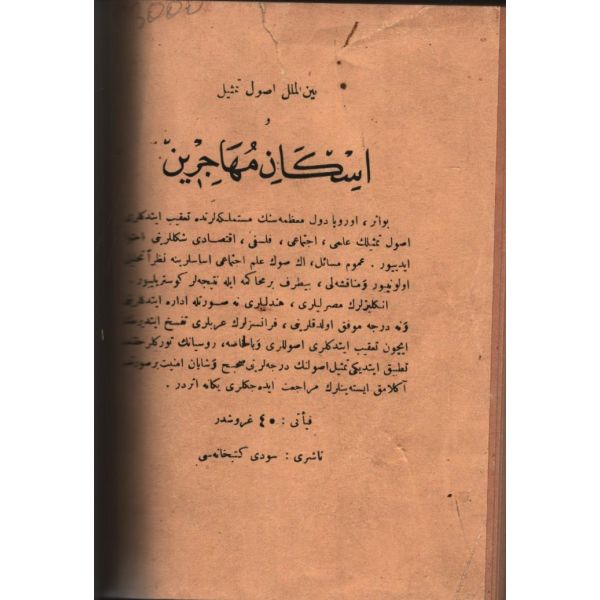 5000
بين الملل اصول تمثيل
و
اسكان مهاجرين
بو اثر ، اوروپا دول معظمه سنك مستملكه لرنده تعقيب ايتدكلرى
اصول تمثيلك علمى ، اجتماعى ، فلسفى ، اقتصادى شكللرينى
ايدييور . عموم مسائل ، اك صوك علم اجتماعى اساسلرينه نظراً
اولونيور ومناقشه لى ، بيطرف بر محاكمه ايله نتيجه لر كوستريليور .
انكليزلرك مصرليلرى ، هندليلرى نه صورتله اداره ايتدكلرينى
ونه درجه موفق اولدقلرينى ، فرانسزلرك عربلرى تفسخ ايتديرمك
ايچون تعقيب ايتدكلرى اصوللرى وبالخاصه ، روسيانك توركلر حقنده
تطبيق ايتديكى تمثيل اصولنك درجه لرينى صحيح وشايان امنيت بر صورتده
آكلامق ايسته ينلرك مراجعت ايده جكلرى يكانه اثردر .
فيأتى : ٤٠ غروشدر
ناشرى : سودى كتبخانه سى